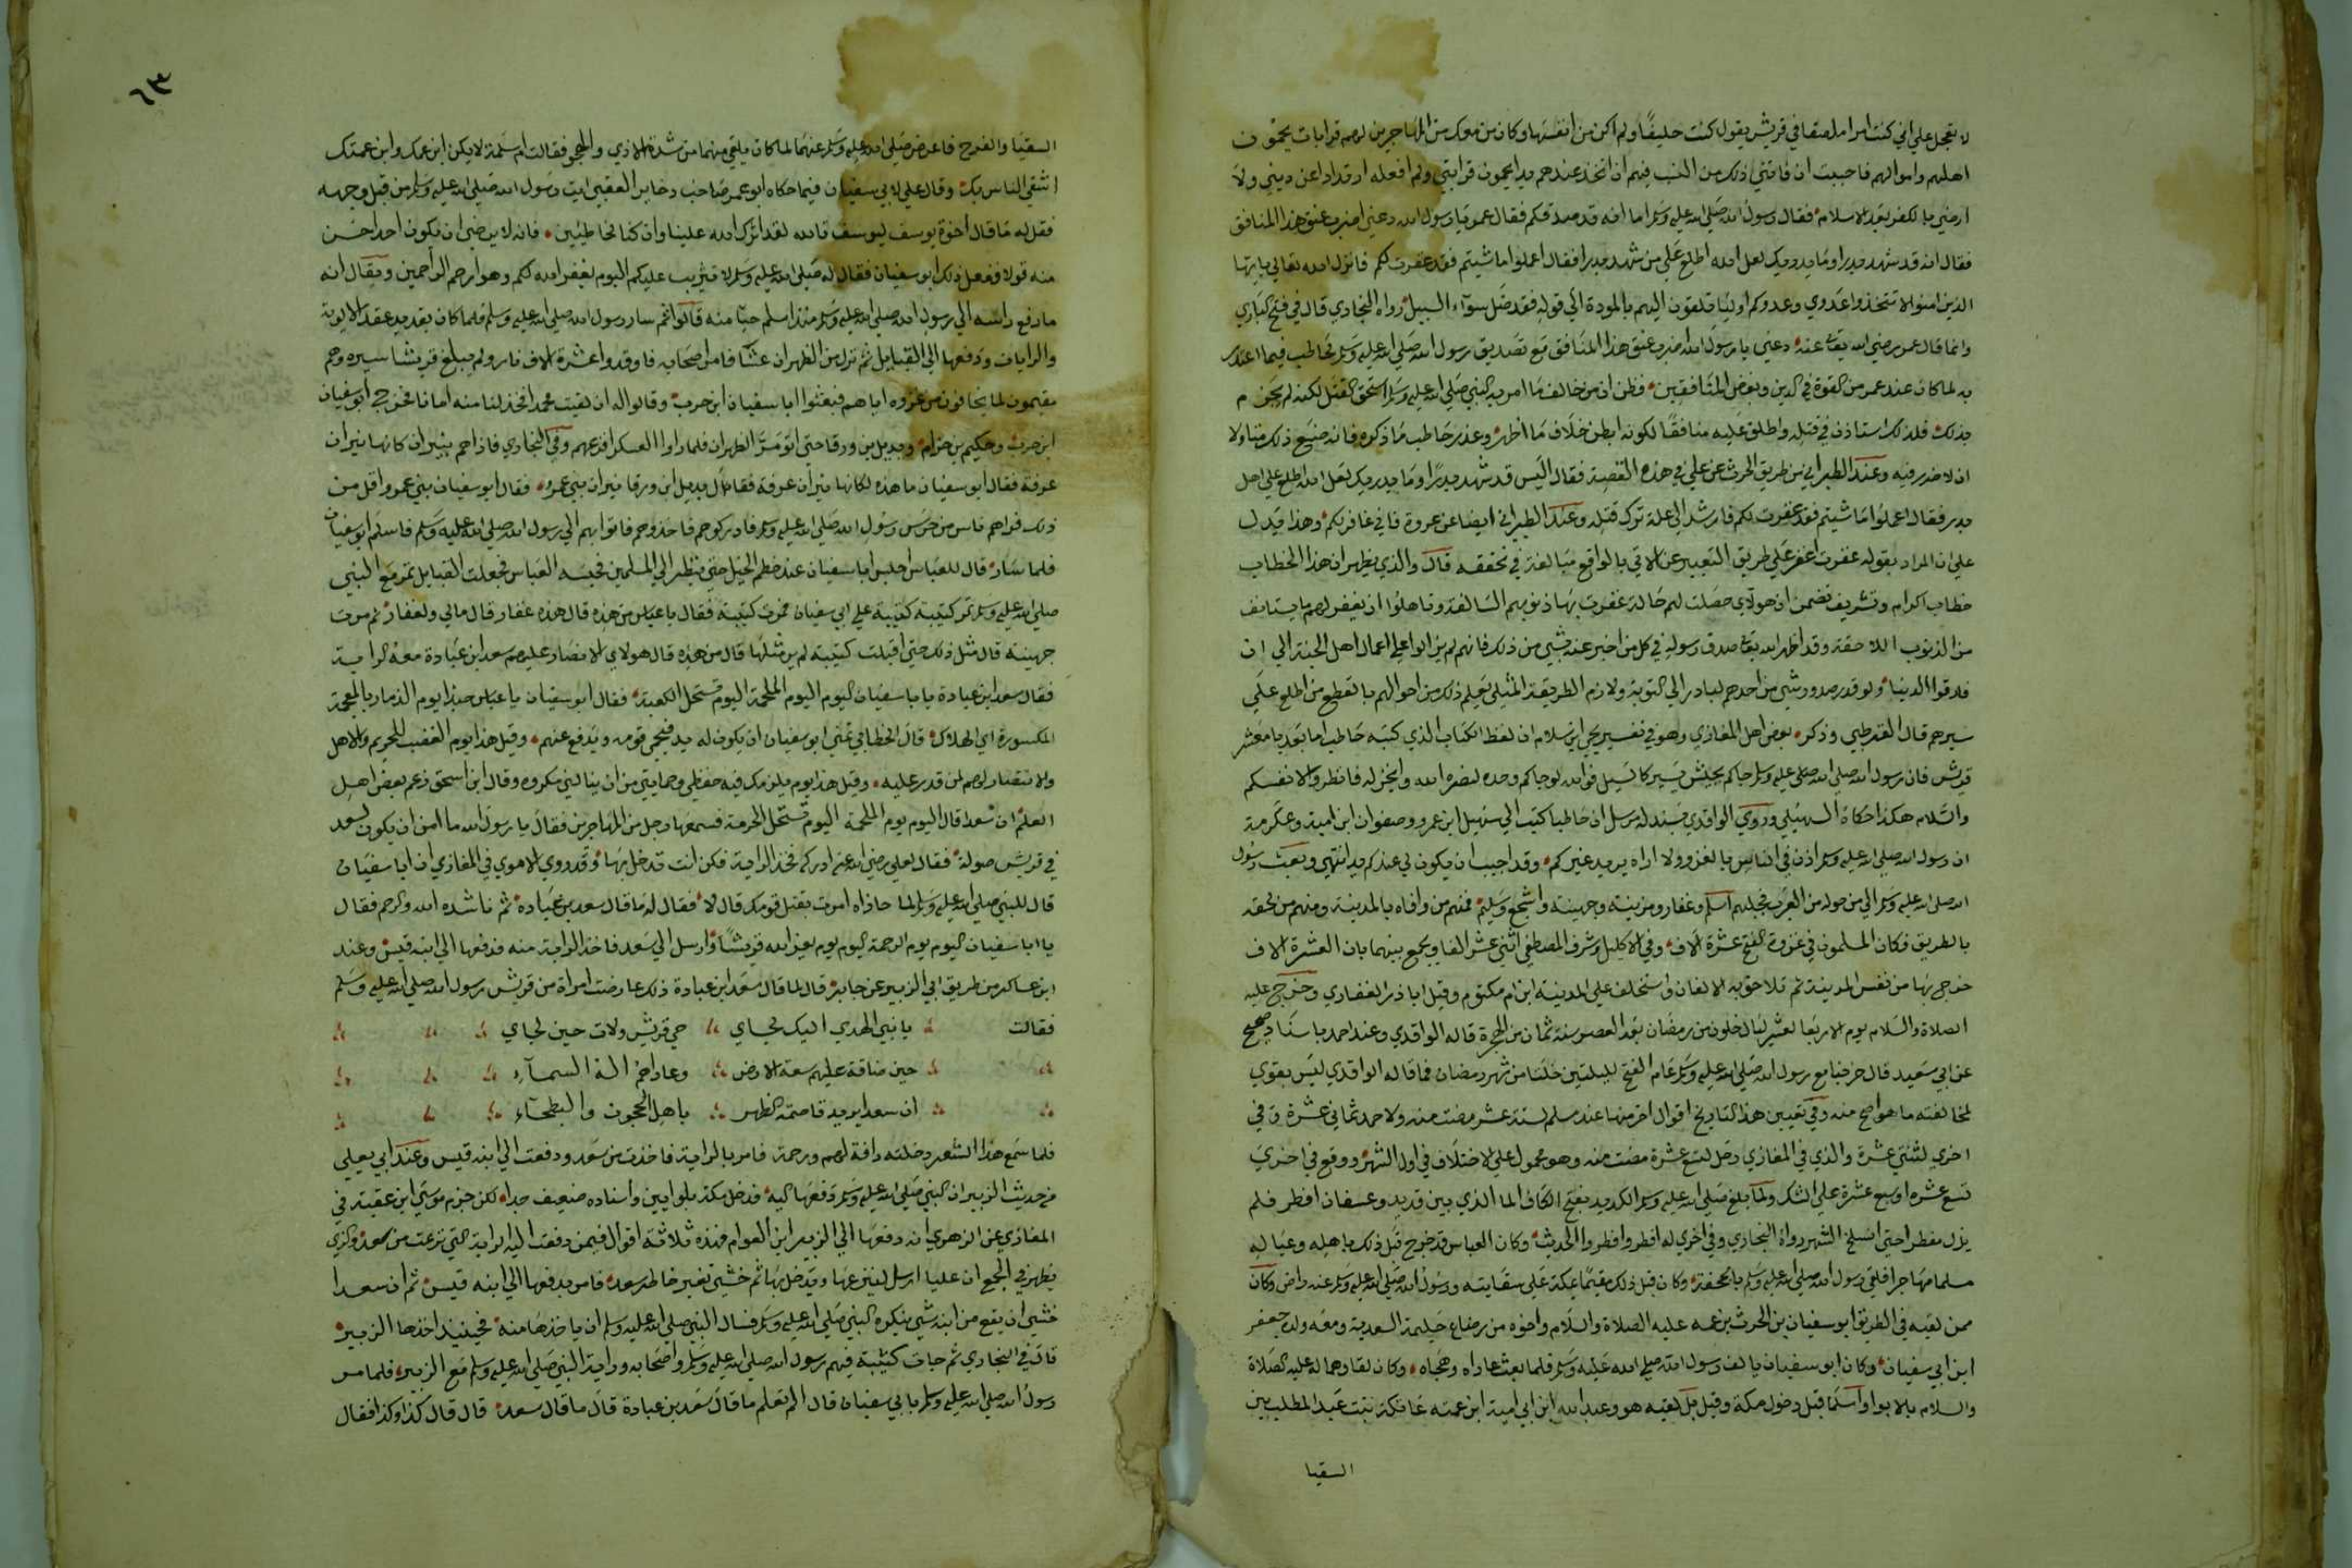 لا تعجل علي اني كنت امرا ملصقا في قريش يقول كنت حليفا ولم اكن من انفسها وكان من معك من المهاجرين لهم قرابات يحمون
اهليهم واموالهم فاحببت ان فاتني ذلك من النسب فيهم ان اتخذ عندهم يدا يحمون قرابتي ولم افعله ارتدادا عن ديني ولا
ارضي بالكفر بعد الاسلام فقال رسول الله صلي الله عليه وسلم اما انه قد صدقكم فقال عمر يا رسول الله دعني اضرب عنق هذا المنافق
فقال انه قد شهد بدرا وما يدريك لعل الله اطلع علي من شهد بدرا فقال اعملوا ما شيتم فقد غفرت لكم فانزل الله تعالي يا ايها
الذين امنوا لا تتخذوا عدوي وعدوكم اوليا تلقون اليهم بالمودة الي قوله فقد ضل سوآء السبيل رواه البخاري قال في فتح الباري
وانما قال عمر رضي الله تعا عنه دعني يا رسول الله اضرب عنق هذا المنافق مع تصديق رسول الله صلي الله عليه وسلم لحاطب فيما اعتذر
به لما كان عند عمر من القوة في الدين وبغض المنافقين فظن ان من خالف ما امر به النبي صلي الله عليه وسلم استحق القتل لكنه لم يجزم
بذلك فلذلك استاذن في قتله واطلق عليه منافقا لكونه ابطن خلاف ما اظهر وعذر حاطب ما ذكره فانه صنع ذلك متاولا
ان لا ضرر فيه وعند الطبراني من طريق الحرث عن علي في هذه القصة فقال اليس قد شهد بدرا وما يدريك لعل الله اطلع علي اهل
بدر فقال اعملوا ما شيتم فقد غفرت لكم فارشد الي علة ترك قتله وعند الطبراني ايضا عن عروة فاني غافر لكم وهذا يدل
علي ان المراد بقوله غفرت اغفر علي طريق التعبير عن الاتي بالواقع مبالغة في تحققه قال والذي يظهر ان هذا الخطاب
خطاب اكرام وتشريف تضمن ان هولاي حصلت لهم حالة غفرت بها ذنوبهم السالفة وتاهلوا ان يغفر لهم ما يستانف
من الذنوب اللاحقة وقد اظهر الله تعا صدق رسوله في كل من اخبر عنه بشي من ذلك فانهم لم يزالوا علي اعمال اهل الجنة الي ان
فارقوا الدنيا ولو قدر صدور شي من احدهم لبادر الي التوبة ولازم الطريقة المثلي يعلم ذلك من احوالهم بالقطع من اطلع علي
سيرهم قال القرطبي وذكر بعض اهل المغازي وهو في تفسير يحيي ابن سلام ان لفظ الكتاب الذي كتبه حاطب اما بعد يا معشر
قريش فان رسول الله صلي الله عليه وسلم جاكم بجيش يسير كالسيل فوالله لو جاكم وحده لنصره الله وانجز له فانظروا لانفسكم
والسلام هكذا حكاه السهيلي وروي الواقدي بسند له مرسل ان حاطبا كتب الي سهيل ابن عمرو وصفوان ابن امية وعكرمة
ان رسول الله صلي الله عليه وسلم اذن في الناس بالغزو ولا اراه يريد غيركم وقد احببت ان يكون لي عندكم يد انتهي وبعث رسول
الله صلي الله عليه وسلم الي من حوله من العرب فجلبهم اسلم وغفار ومزينة وجهينة واشجع وسليم فمنهم من وافاه بالمدينة ومنهم من لحقه
بالطريق فكان المسلمون في غزوة الفتح عشرة الاف وفي الاكليل وشرف المصطفي اثني عشر الفا ويجمع بينهما بان العشرة الاف
خرج بها من نفس المدينة ثم تلاحق به الالفان واستخلف علي المدينة ابن ام مكتوم وقيل ابا ذر الغفاري وخرج عليه
الصلاة والسلام يوم الاربعا لعشر ليال خلون من رمضان بعد العصر سنة ثمان من الهجرة قاله الواقدي وعند احمد باسناد صحيح
عن ابي سعيد قال خرجنا مع رسول الله صلي الله عليه وسلم عام الفتح لليلتين خلتا من شهر رمضان فما قاله الواقدي ليس بقوي
لمخالفته ما هو اصح منه وفي تعيين هذا التاريخ اقوال اخر منها عند مسلم لستة عشر مضت منه ولاحمد ثماني عشرة وفي
اخري لثنتي عشرة والذي في المغازي دخل لتسع عشرة مضت منه وهو محمول علي الاختلاف في اول الشهر ووقع في اخري
تسع عشرة او سبع عشرة علي الشك ولما بلغ صلي الله عليه وسلم الكديد بفتح الكاف الما الذي بين قديد وعسفان افطر فلم
يزل مفطرا حتي انسلخ الشهر رواه البخاري وفي اخري له افطر وافطروا الحديث وكان العباس قد خرج قبل ذلك باهله وعياله
مسلما مهاجرا فلقي رسول الله صلي الله عليه وسلم بالجحفة وكان قبل ذلك مقيما بمكة علي سقايته ورسول الله صلي الله عليه وسلم عنه راض وكان
ممن لقيه في الطريق ابو سفيان بن الحرث بن عمه عليه الصلاة والسلام واخوه من رضاع حليمة السعدية ومعه ولده جعفر
ابن ابي سفيان وكان ابو سفيان يالف رسول الله صلي الله عليه وسلم فلما بعث عاداه وهجاه وكان لقاوهما له عليه الصلاة
والسلام بالابوا واسلما قبل دخول مكة وقيل بل لقيه هو وعبد الله ابن ابي امية ابن عمته عاتكة بنت عبد المطلب بين
السقيا
٦٣
السقيا والعرج فاعرض صلي الله عليه وسلم عنهما لما كان يلقي منهما من شدة الاذي والهجو فقالت ام سلمة لا يكن ابن عمك وابن عمتك
اشقي الناس بك وقال علي لابي سفيان فيما حكاه ابو عمر صاحب دخاير العقبي ايت رسول الله صلي الله عليه وسلم من قبل وجهه
فقل له ما قال اخوة يوسف ليوسف تالله لقد اثرك الله علينا وان كنا لخاطئين فانه لا يرضي ان يكون احد احسن
منه قولا ففعل ذلك ابو سفيان فقال له صلي الله عليه وسلم لا تثريب عليكم اليوم يغفر الله لكم وهو ارحم الراحمين ويقال انه
ما رفع راسه الي رسول الله صلي الله عليه وسلم منذ اسلم حيا منه قالوا ثم سار رسول الله صلي الله عليه وسلم فلما كان بقديد عقد الالوية
والرايات ودفعها الي القبايل ثم نزل من الظهران عشا فامر اصحابه فاوقدوا عشرة الاف نار ولم يبلغ قريشا سيره وهم
مغتمون لما يخافون من غزوه اياهم فبعثوا ابا سفيان ابن حرب وقالوا له ان لقيت محمدا فخذ لنا منه امانا فخرج ابو سفيان
ابن حرب وحكيم بن حزام وبديل بن ورقا حتي اتو مر الظهران فلما راوا العسكر افزعهم وفي البخاري فاذا هم بنيران كانها نيران
عرفة فقال ابو سفيان ما هذه لكانها نيران عرفة فقال بديل ابن ورقا نيران بني عمرو فقال ابو سفيان بني عمرو اقل من
ذلك فراهم ناس من حرس رسول الله صلي الله عليه وسلم فادركوهم فاخذوهم فاتوا بهم الي رسول الله صلي الله عليه وسلم فاسلم ابو سفيان
فلما سار قال للعباس احبس ابا سفيان عند خطم الخيل حتي ينظر الي المسلمين فحبسه العباس فجعلت القبايل تمر مع النبي
صلي الله عليه وسلم تمر كتيبة كتيبة علي ابي سفيان فمرت كتيبة فقال يا عباس من هذه قال هذه غفار قال مالي ولغفار ثم مرت
جهينة قال مثل ذلك حتي اقبلت كتيبة لم ير مثلها قال من هذه قال هولاي الانصار عليهم سعد ابن عبادة معه الراية
فقال سعد ابن عبادة يا با سفيان اليوم اليوم الملحمة اليوم تستحل الكعبة فقال ابو سفيان يا عباس حبذا يوم الذمار بالمعجمة
المكسورة اي الهلاك قال الخطابي تمني ابو سفيان ان يكون له يد فيحمي قومه ويدفع عنهم وقيل هذا يوم الغضب للحريم والاهل
والانتصار لهم لمن قدر عليه وقيل هذا يوم يلزمك فيه حفظي وحمايتي من ان ينالني مكروه وقال ابن اسحق زعم بعض اهل
العلم ان سعدا قال اليوم يوم الملحمة اليوم تستحل الحرمة فسمعها رجل من المهاجرين فقال يا رسول الله ما امن ان يكون لسعد
في قريش صولة فقال لعلي رضي الله عنه ادركه فخذ الراية فكن انت تدخل بها وقد روي الاموي في المغازي ان ابا سفيان
قال للنبي صلي الله عليه وسلم لما حاذاه امرت بقتل قومك قال لا فقال له ما قال سعد بن عبادة ثم ناشده الله والرحم فقال
يا ابا سفيان اليوم يوم الرحمة اليوم يوم يعز الله قريشا وارسل الي سعد فاخذ الراية منه فدفعها الي ابنه قيس وعند
ابن عساكر من طريق ابي الزبير عن جابر قال لما قال سعد ابن عبادة ذلك عارضت امراة من قريش رسول الله صلي الله عليه وسلم
فقالت يا نبي الهدي اليك لجاي حي قريش ولات حين لجاي
حين ضاقة عليهم سعة الارض وعاداهم اله السمآء
ان سعدا يريد قاصمة الظهر باهل الحجون والبطحآء
فلما سمع هذا الشعر دخلته رافة لهم ورحمة فامر بالراية فاخذت من سعد ودفعت الي ابنه قيس وعند ابي يعلي
من حديث الزبير ان النبي صلي الله عليه وسلم دفعها اليه فدخل مكة بلوايين واسناده ضعيف جدا لكن جزم موسي ابن عقبة في
المغازي عن الزهري انه دفعها الي الزبير ابن العوام فهذه ثلاثة اقوال فيمن دفعت اليه الراية التي نزعت من سعد والذي
يظهر في الجمع ان عليا ارسل لينزعها ويدخل بها ثم خشي تغير خاطر سعد فامر بدفعها الي ابنه قيس ثم ان سعدا
خشي ان يقع من ابنه شي ينكره النبي صلي الله عليه وسلم فسال النبي صلي الله عليه وسلم ان ياخذها منه فحينيذ اخذها الزبير
قال في البخاري ثم جات كتيبة فيهم رسول الله صلي الله عليه وسلم واصحابه وراية النبي صلي الله عليه وسلم مع الزبير فلما مر
رسول الله صلي الله عليه وسلم بابي سفيان قال الم تعلم ما قال سعد بن عبادة قال ما قال سعد قال قال كذا وكذا فقال